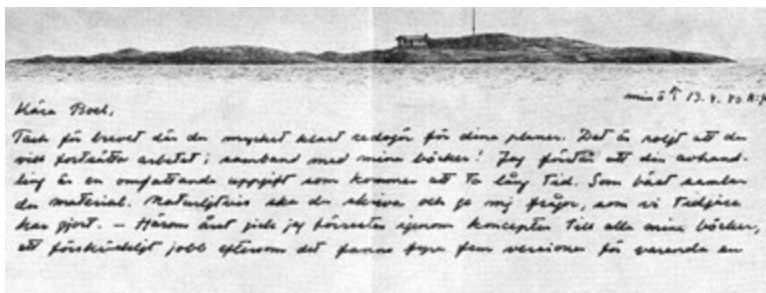 min ö ↑ 13.4.80
Kära Boel,
Tack för brevet där du mycket klart redogör för dina planer. Det är roligt att du
vill fortsätta arbetet i samband med mina böcker! Jag förstår att din avhand-
ling är en omfattande uppgift som kommer att ta lång tid. Som bäst samlar
du material. Naturligtvis ska du skriva och ge mig frågor, som vi tidigare
har gjort. – Härom året gick jag förresten igenom koncepten till alla mina böcker,
ett förskräckligt jobb eftersom det fanns fyra fem versioner för varenda en